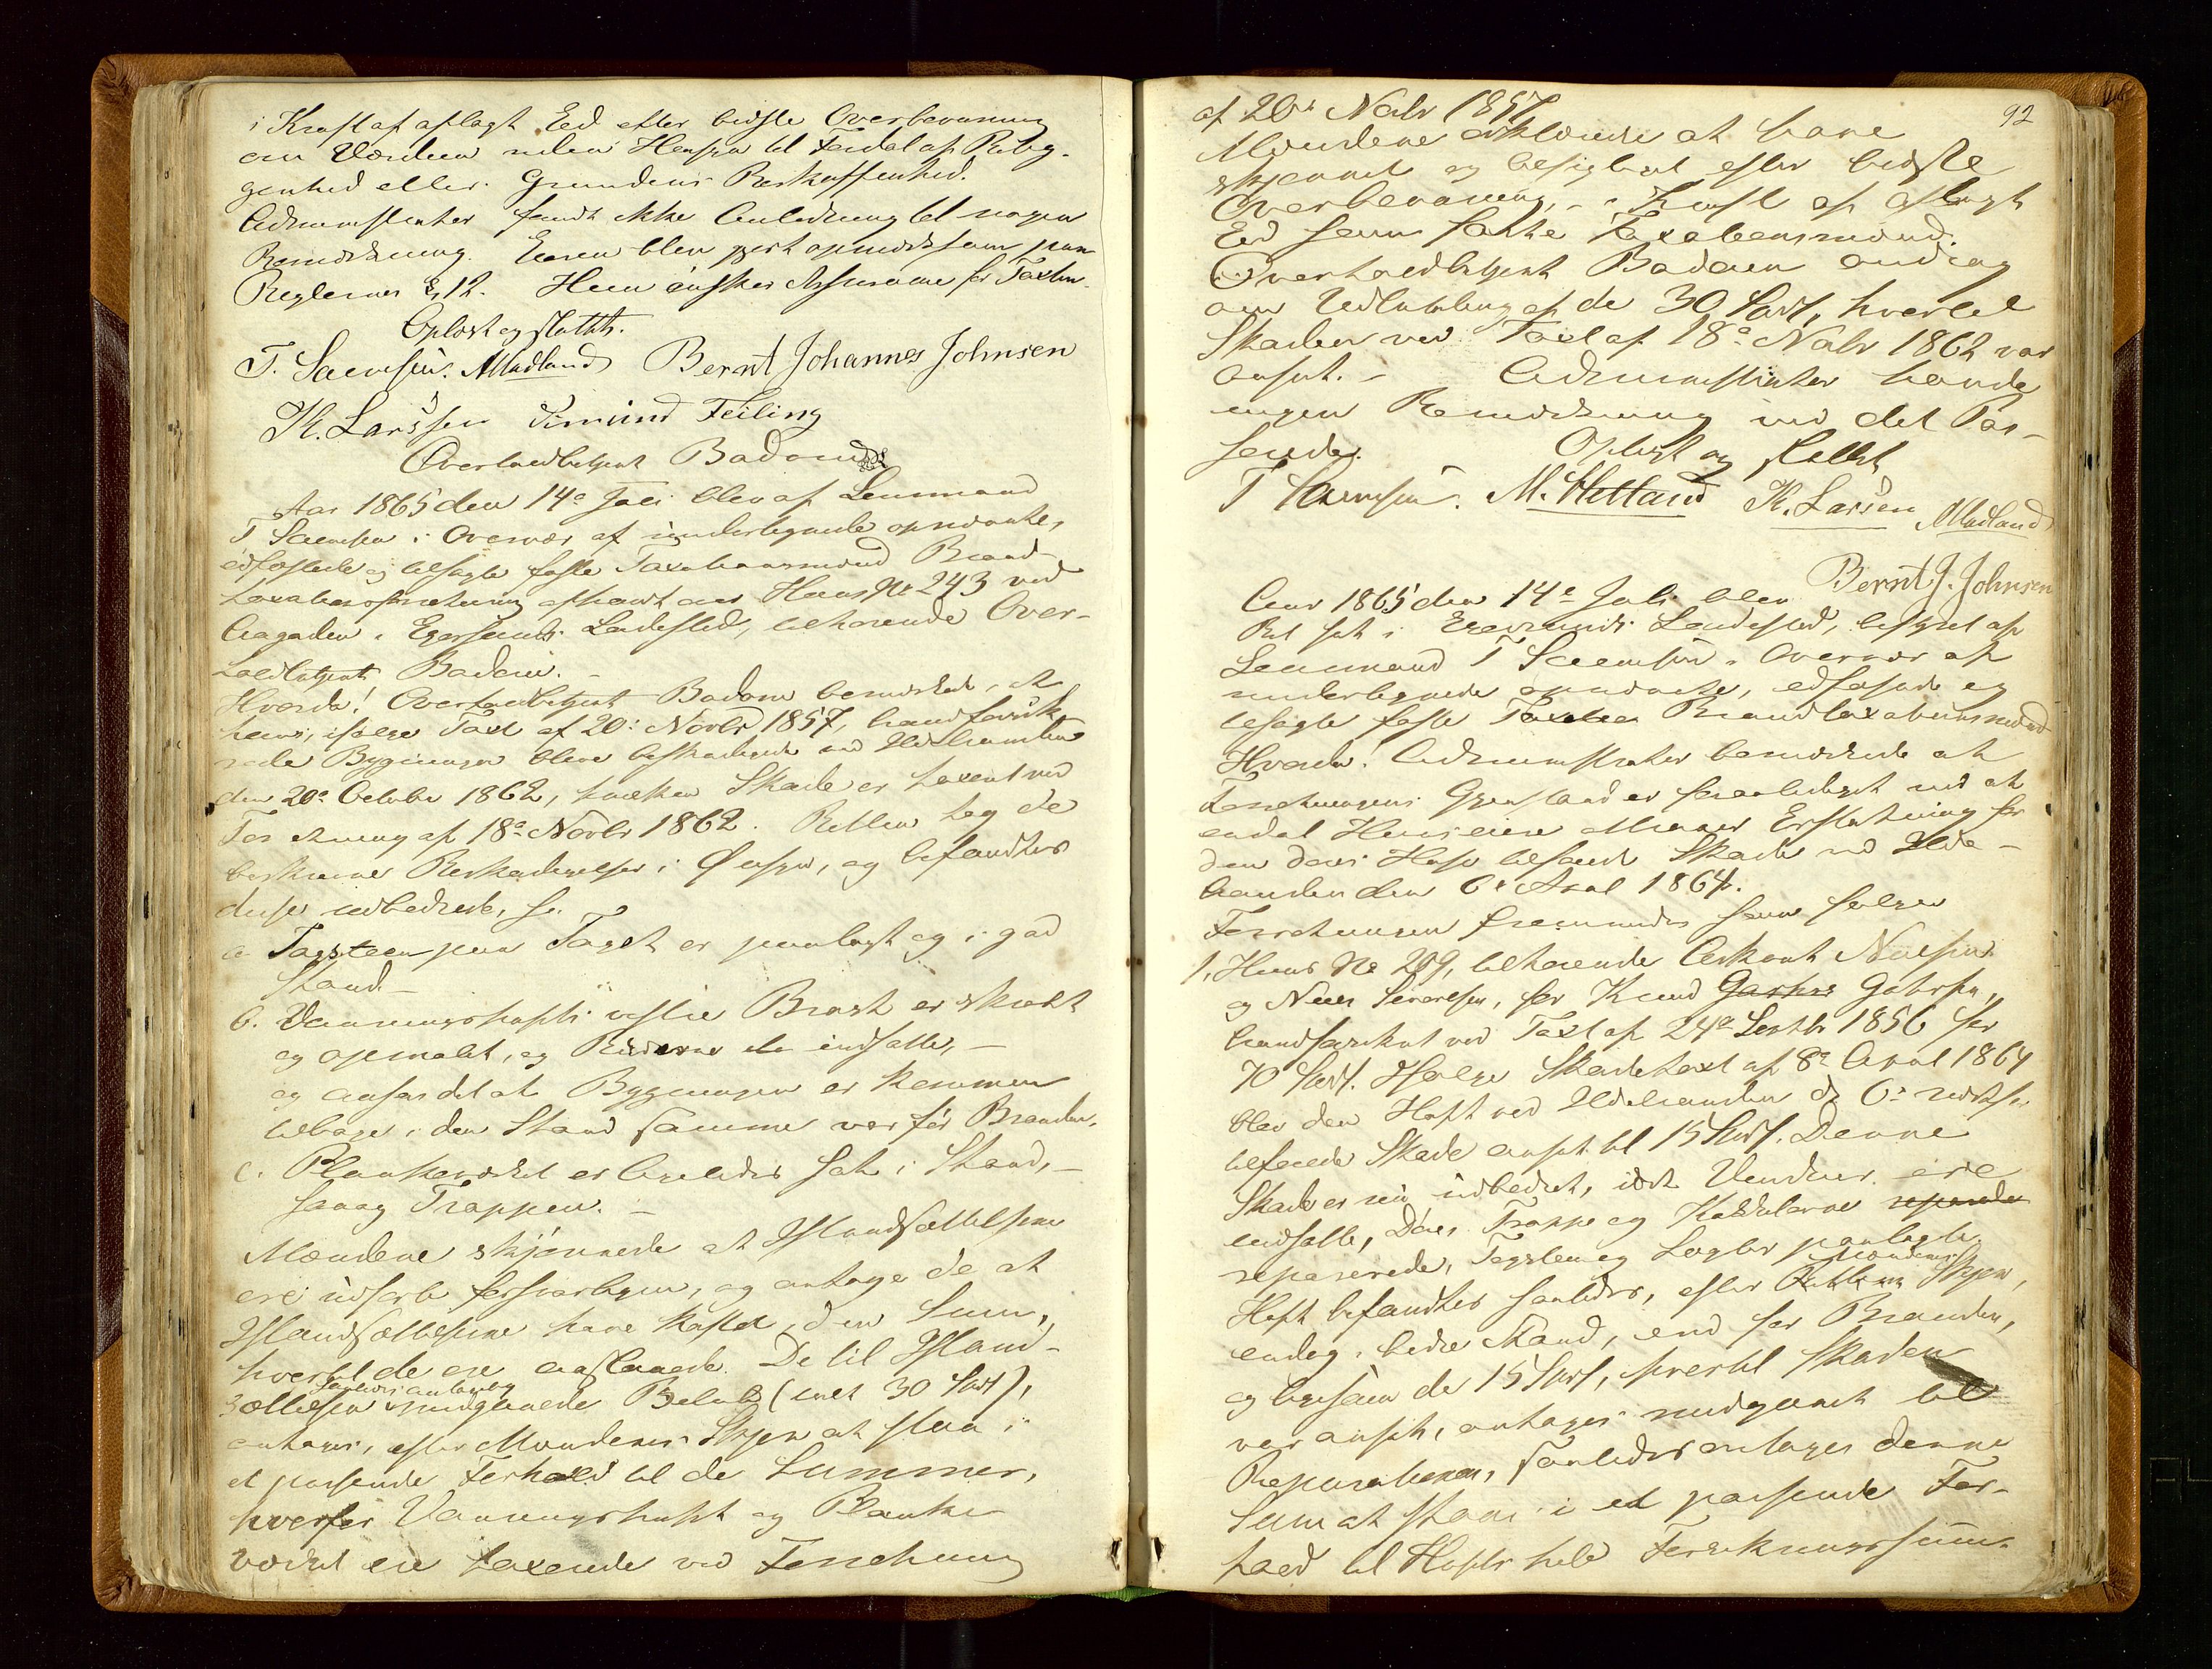 i Kraft af aflagt Eed efter bedste Overbeviisning
om Værdien uden Hensyn til Fordel af Belig-
genhed eller Grundens Beskaffenhed.
Administrator fandt ikke Anledning til nogen
Bemærkning. Eieren blev gjort opmærksom paa
Reglernes § 12. Han ønsker Assurance for Taxten.
Oplæst og sluttet.
T. Salvesen. AMadland Bernt Johannes Johnsen
K. Larssen Simund Feiling
Overtoldbetjent Badom
Aar 1865 den 14e Juli blev af Lensmand
T Salvesen i Overvær af undertegnede opnævnte,
edfæstede og tilsagte faste Taxationsmænd Brand-
taxationsforretning afholdt over Huus No 243 ved
Aagaden i Egersunds Ladested, tilhørende Over-
toldbetjent Badom. –
Hvorda! Overtoldbetjent Badom bemærkede, at
hans, ifølge Taxt af 20e Novbr 1857, brandforsik-
rede Bygninger bleve beskadigede ved Ildebranden
den 20e October 1862, hvilken Skade er taxeret ved
Forretning af 18e Novbr 1862. Retten tog de
beskrevne Beskadigelser i Øiesyn, og befandtes
disse udbedrede, so.
a. Tagsteen paa Taget er paalagt og i god
Stand. –
b. Vaaningshusets vestre Bryst er skrabt
og opmalet, og Ruderne indsatte, –
og ansees det at Bygningen er kommen
tilbage i den Stand samme var før Branden.
c. Plankeværket er ligeledes sat i Stand, –
saaog Trappen. –
Mændene skjønnede at Istandsættelsen
ere udførte forsvarligen, og antage de at
Istandsættelserne have kostet den Sum,
hvortil de ere anslaaede. De til Istand-
sættelsen medgaaede Beløb (ialt 30 Spd),
antages, efter Mændenes Skjøn at staa i
et passende Forhold til de Summer,
hvorfor Vaaningshuset og Planke-
værket ere taxerede ved Forretning
92
af 20e Novbr 1857
Mændene erklærede at have
skjønnet og besigtiget efter bedste
Overbeviisning, – i Kraft af aflagt
Eed som faste Taxationsmænd.
Overtoldbetjent Badom androg
om Udbetaling af de 30 Spd, hvortil
Skaden ved Taxt af 18e Novbr 1862 var
ansat. – Administrator havde
ingen Bemærkning ved det Pas-
serede. Oplæst og sluttet
T Salvesen. M. Hetland K. Larssen AMadland
Bernt J. Johnsen
Aar 1865 den 14e Juli blev
Ret sat i Egersunds Ladested, bestyret af
Lensmand T Salvesen i Overvær af
undertegnede opnævnte, edfæstede og
tilsagte faste Brandtaxationsmænd
Hvorda! Administrator bemærkede at
Forretningens Gjenstand er foranlediget ved at
endel Huuseiere attraaer Erstatning for
den deres Huse tilføiede Skade ved Ilde-
branden den 6e April 1864.
Forretningen fremmedes som følger
1, Huus No 209, tilhørende Nielsen
og Niels Sivertsen, før Knud
brandforsikret ved Taxt af 24e Septbr 1856 for
70 Spd. Ifølge Skadetaxt af 8e April 1864
blev den Huset ved Ildebranden d. 6e
tilføiede Skade ansat til 15 Spd. Denne
Skade er nu udbedret, idet Vinduer ere
indsatte, Døre, Trappe og
reparerede, Tagsteen og paalagte.
Huset befandtes saaledes, efter Mændenes Skjøn,
endog i bedre Stand, end før Branden,
og ligesom de 15 Spd, hvortil Skaden
var ansat, antages medgaaet til
Reparationen, saaledes antages denne
Sum at staae i et passende For-
hold til Husets hele Forsikringssum.